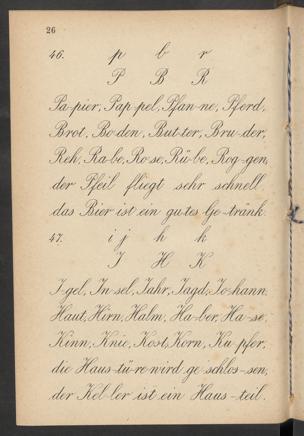 26
46. p b r
P B R
Pa-pier, Pap-pel, Pfan-ne, Pferd,
Brot, Bo-den, But-ter, Bru-der,
Reh, Ra-be, Ro-se, Rü-be, Rog-gen,
der Pfeil fliegt sehr schnell
das Bier ist ein gu-tes Ge-tränk.
47. i j h k
I H K
I-gel, In-sel, Jahr, Jagd, Jo-hann,
Haut, Hirn, Halm, Ha-ber, Ha-se,
Kinn, Knie, Kost, Korn, Ku-pfer,
die Haus-tü-re wird ge-schlos-sen,
der Kel-ler ist ein Haus-teil.